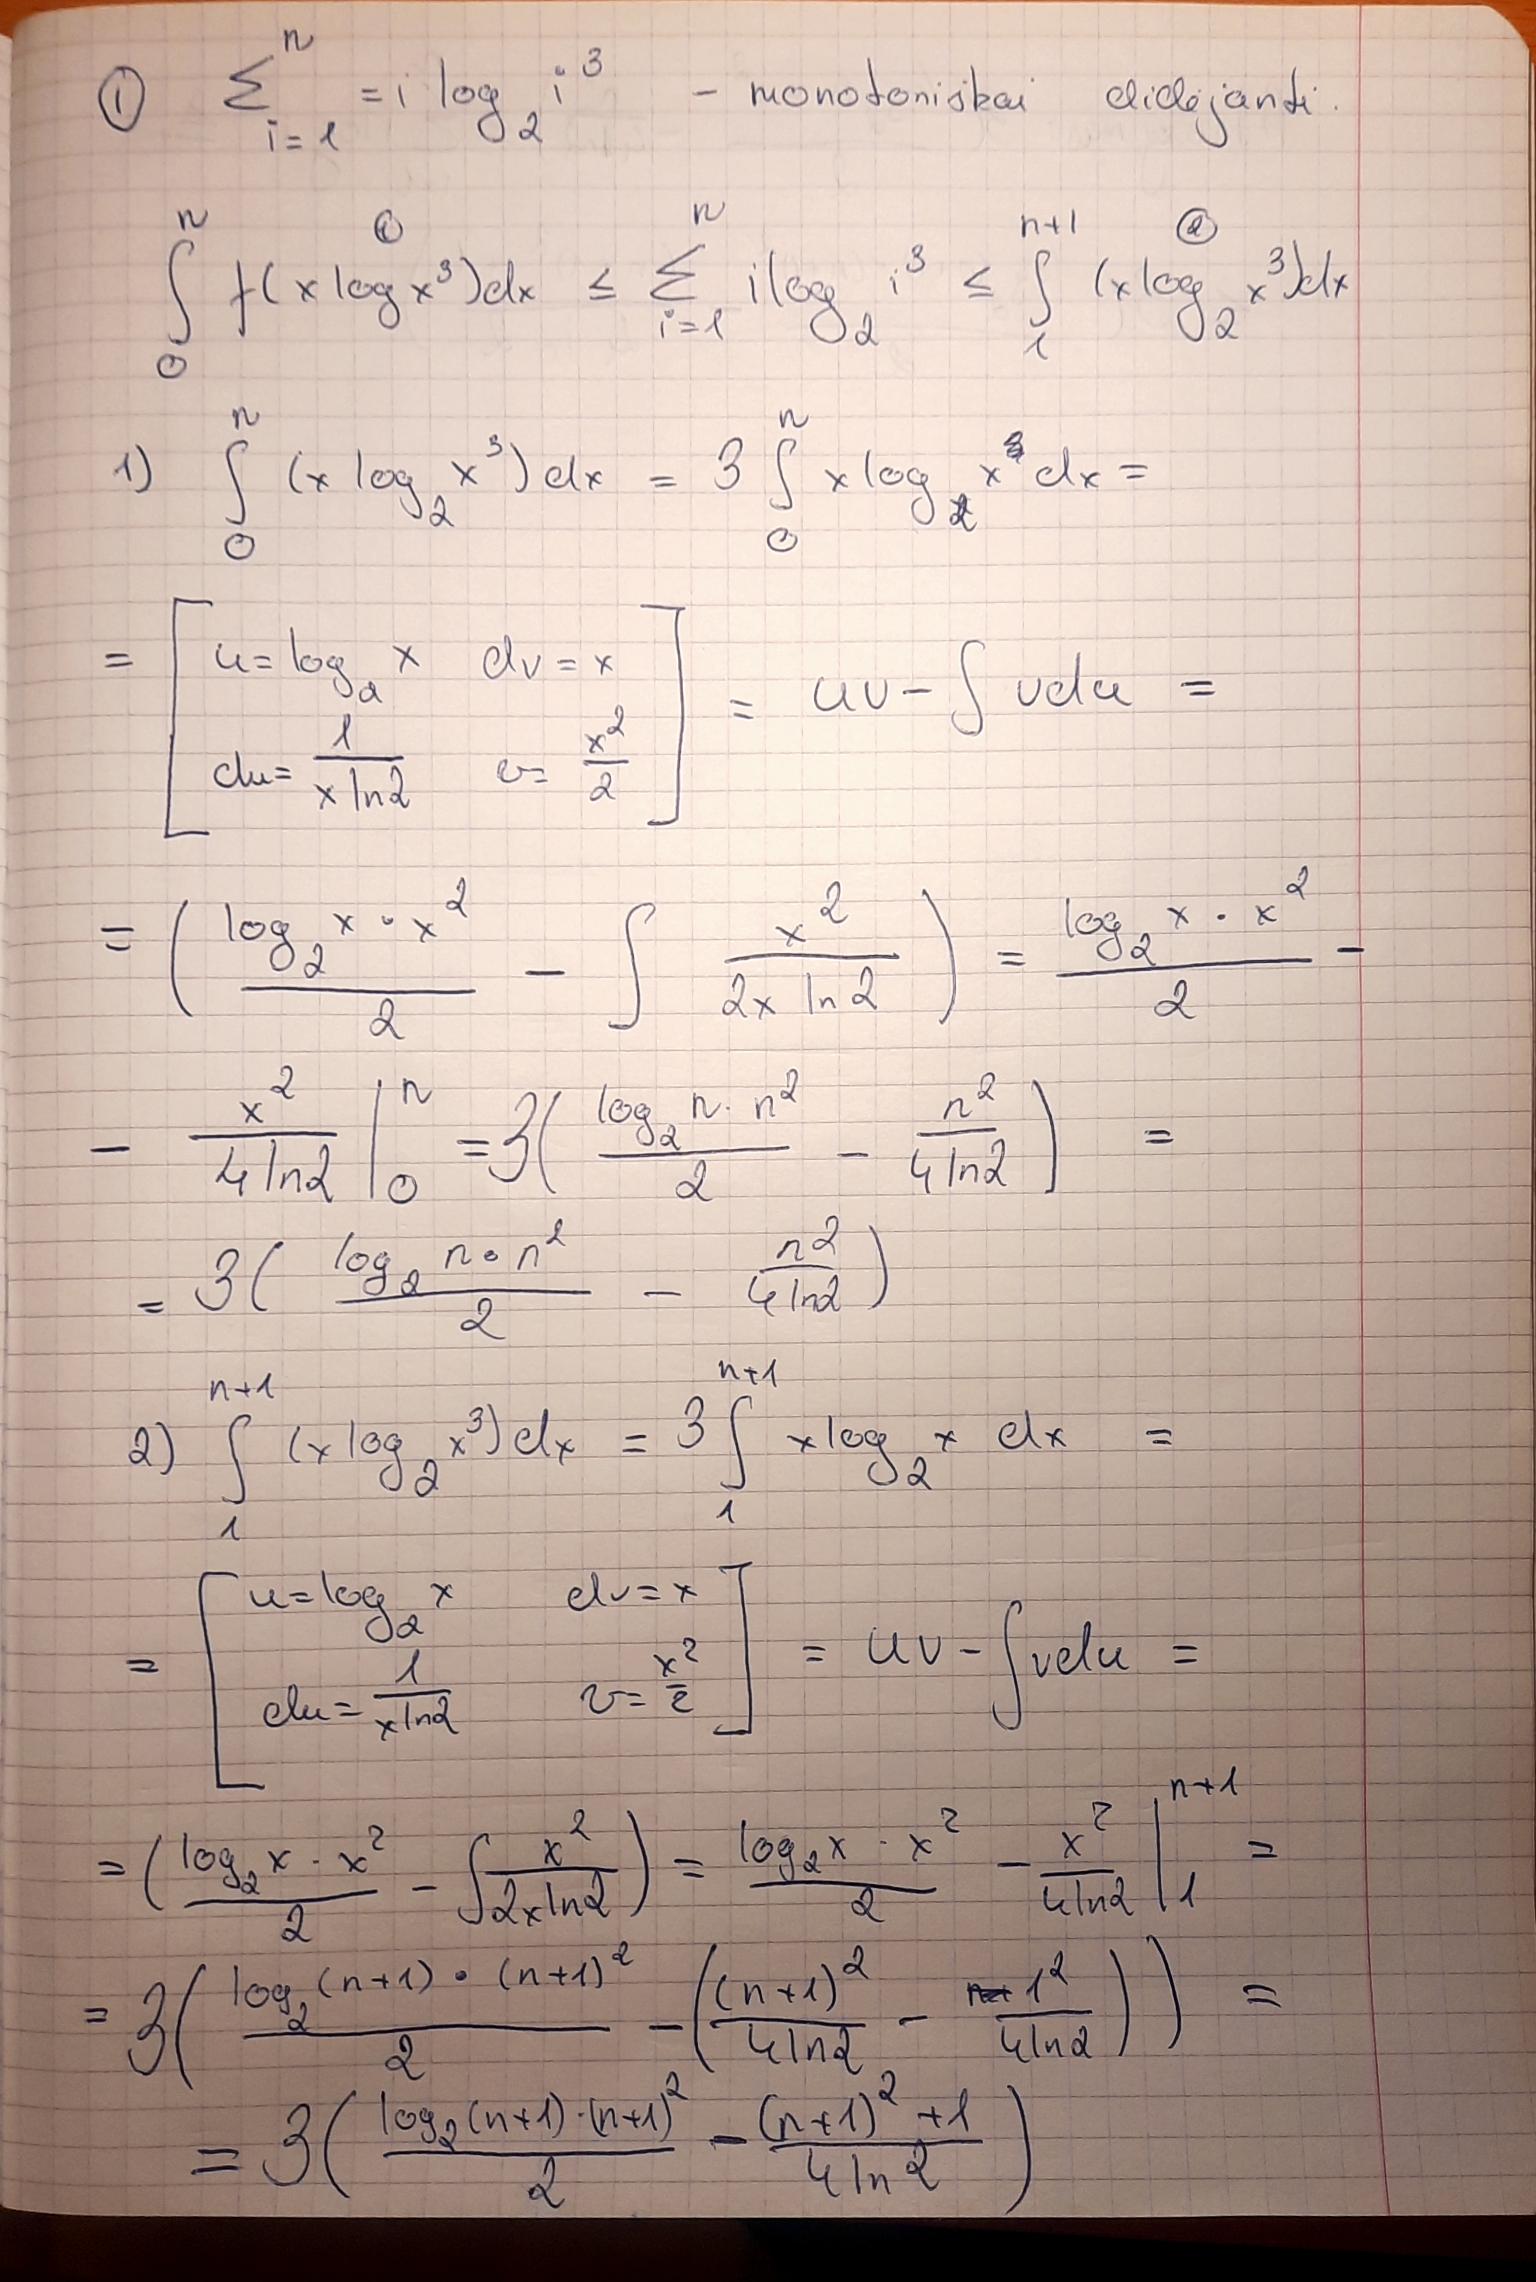 ① ∑_{i=1}^{n} = i log₂ i³ - monotoniškai didėjanti.
∫₀ⁿ f(x log x³)dx ① ≤ ∑_{i=1}^{n} i log₂ i³ ≤ ∫₁ⁿ⁺¹ (x log₂ x³)dx ②
1) ∫₀ⁿ (x log₂ x³) dx = 3 ∫₀ⁿ x log₂ x dx =
= [ u = log₂ x dv = x
du = 1/(x ln2) v = x²/2 ] = uv - ∫ vdu =
= ( (log₂ x · x²)/2 - ∫ x²/(2x ln 2) ) = (log₂ x · x²)/2 -
- x²/(4 ln2) |₀ⁿ = 3( (log₂ n · n²)/2 - n²/(4 ln2) ) =
= 3( (log₂ n · n²)/2 - n²/(4 ln2) )
2) ∫₁ⁿ⁺¹ (x log₂ x³) dx = 3 ∫₁ⁿ⁺¹ x log₂ x dx =
= [ u = log₂ x dv = x
du = 1/(x ln2) v = x²/2 ] = uv - ∫ vdu =
= ( (log₂ x · x²)/2 - ∫ x²/(2x ln2) ) = (log₂ x · x²)/2 - x²/(4 ln2) |₁ⁿ⁺¹ =
= 3( (log₂ (n+1) · (n+1)²)/2 - ( (n+1)²/(4 ln2) - 1²/(4 ln2) ) ) =
= 3( (log₂ (n+1) · (n+1)²)/2 - ((n+1)² + 1)/(4 ln 2) )